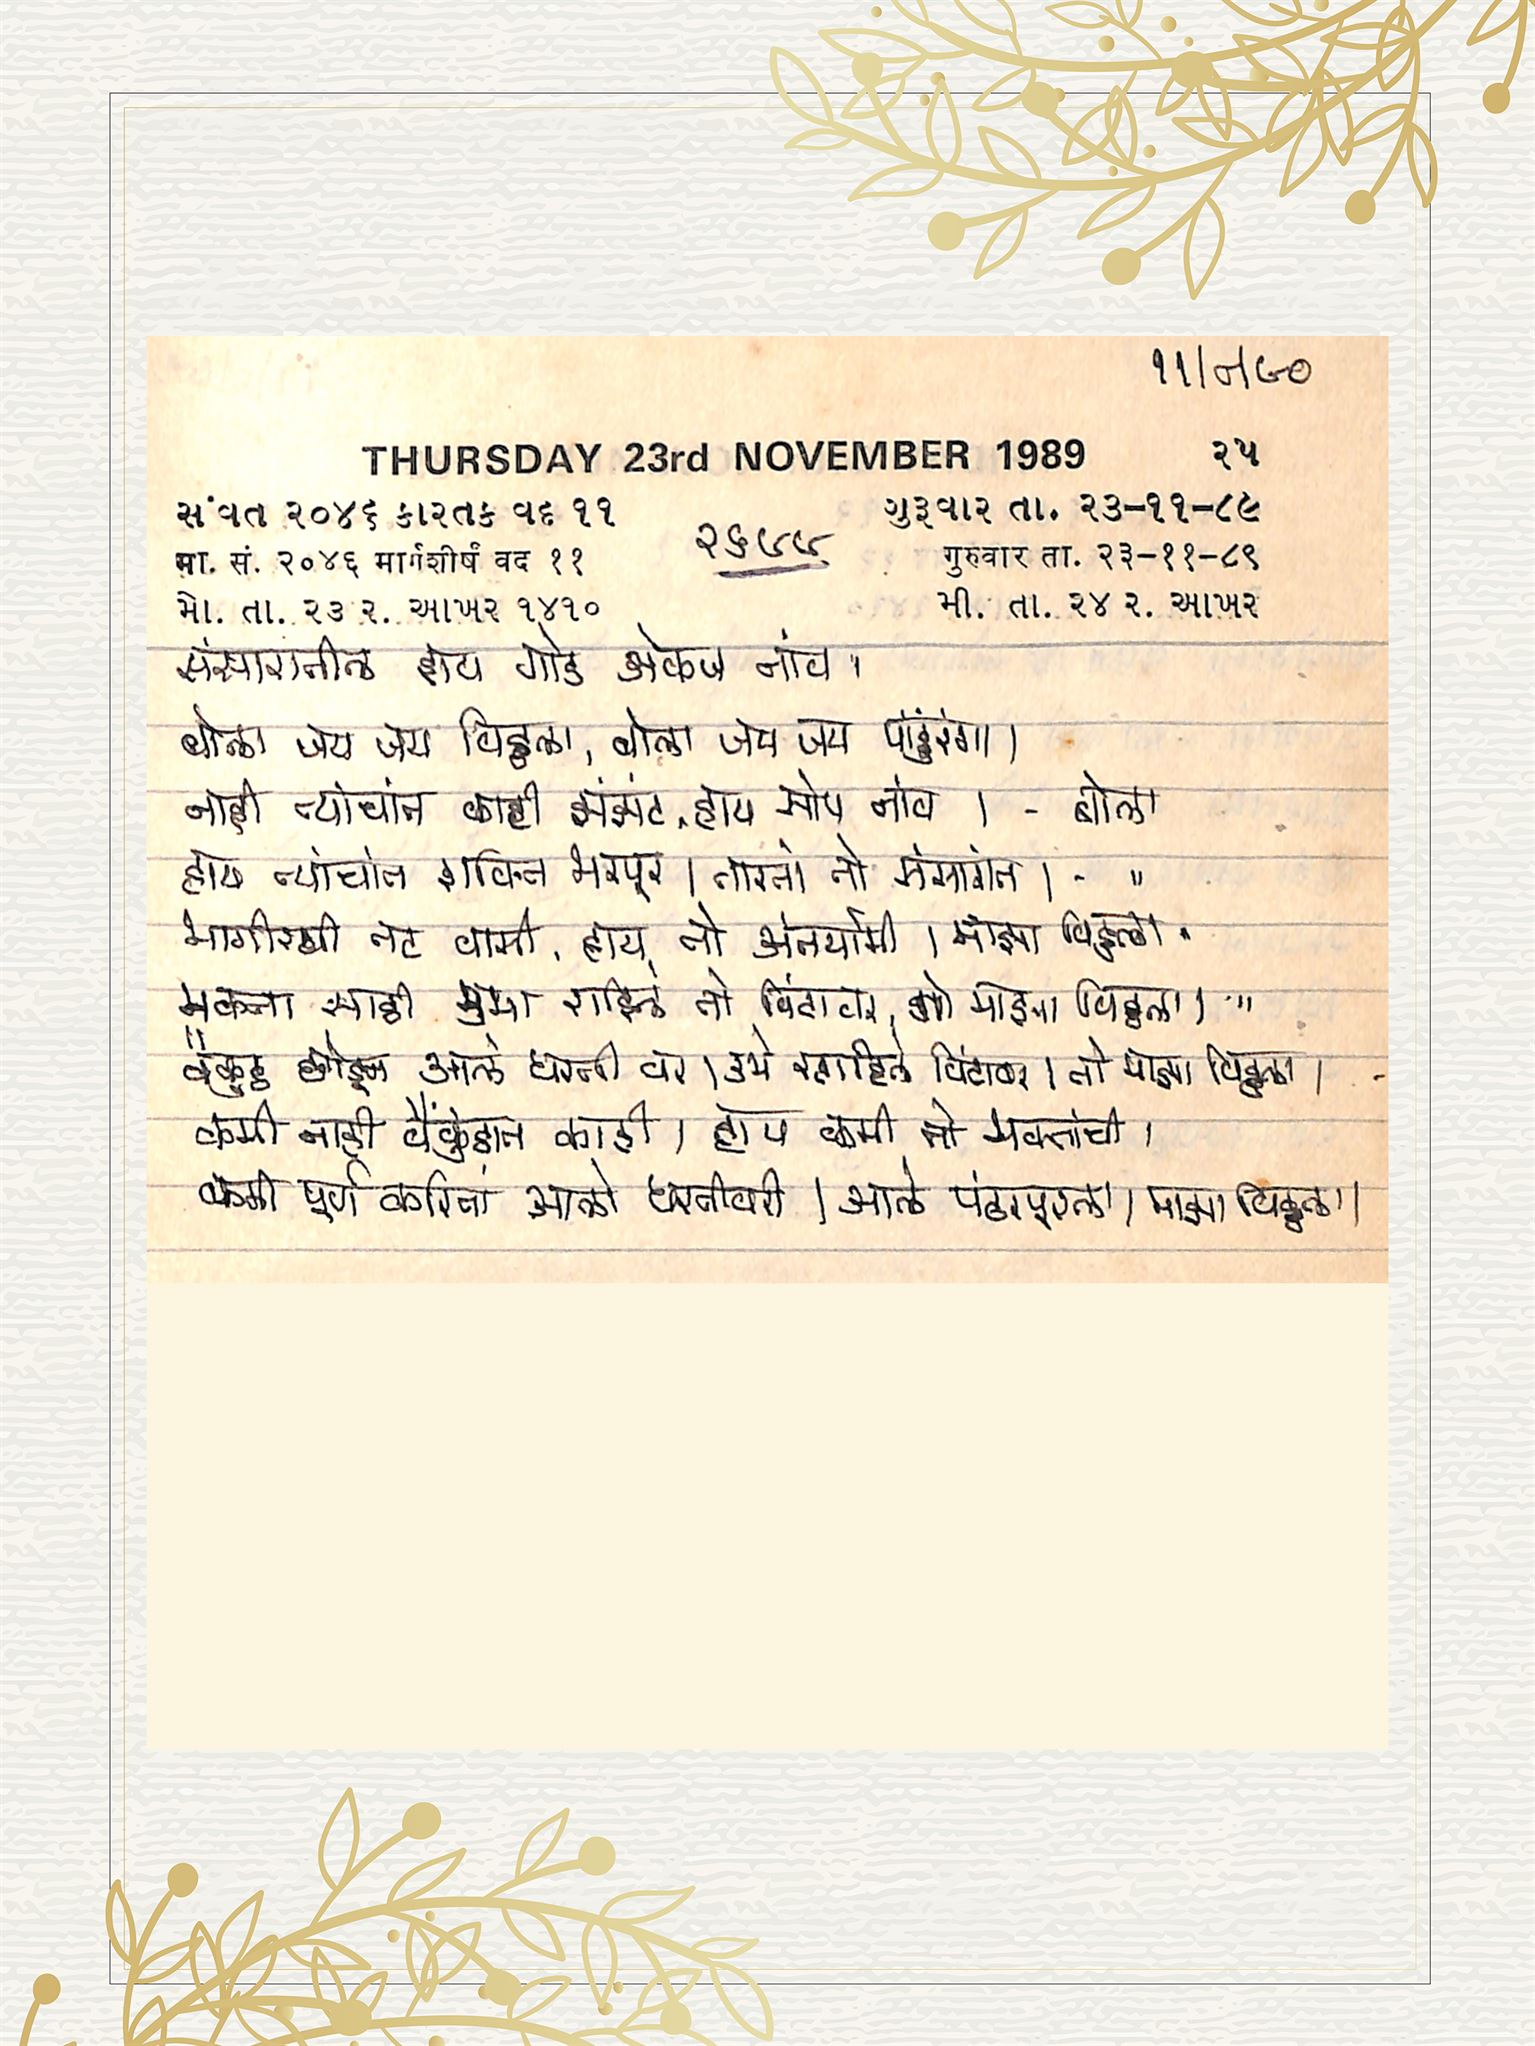 ११/८/९०
THURSDAY 23rd NOVEMBER 1989 ૨૫
સંવત ૨૦૪૬ કારતક વદ ૧૧ ગુરૂવાર તા. ૨૩-૧૧-૮૯
मा. सं. २०४६ मार्गशीर्ष वद ११ गुरुवार ता. २३-११-८९
મો. તા. ૨૩ ર. આખર ૧૪૧૦ મી. તા. ૨૪ ર. આખર
संस्सारातील हाय गोड अेकज नांव ।
बोला जय जय विठ्ठला, बोला जय जय पांडुरंगा ।
नाही त्यांचांत काही झंझंट, हाय सोप नांव । - बोला
हाय त्यांचांत शक्ति भरपूर । तारतो तो संसारांत । - "
भागीरथी तट वासी, हाय तो अंतर्यामी । माझा विठ्ठला "
भक्ता साठी राहिले तो विटावर, माझा विठ्ठला । "
वैंकुठ छोडून आले धरती वर । उभे राहिले विटावर । तो माझा विठ्ठला । -
कमी नाही वैंकुठात काही । हाय कमी तो भक्तांची ।
कमी पूर्ण करितां आले धरतीवरी । आले पंढरपूरला । माझा विठ्ठला ।